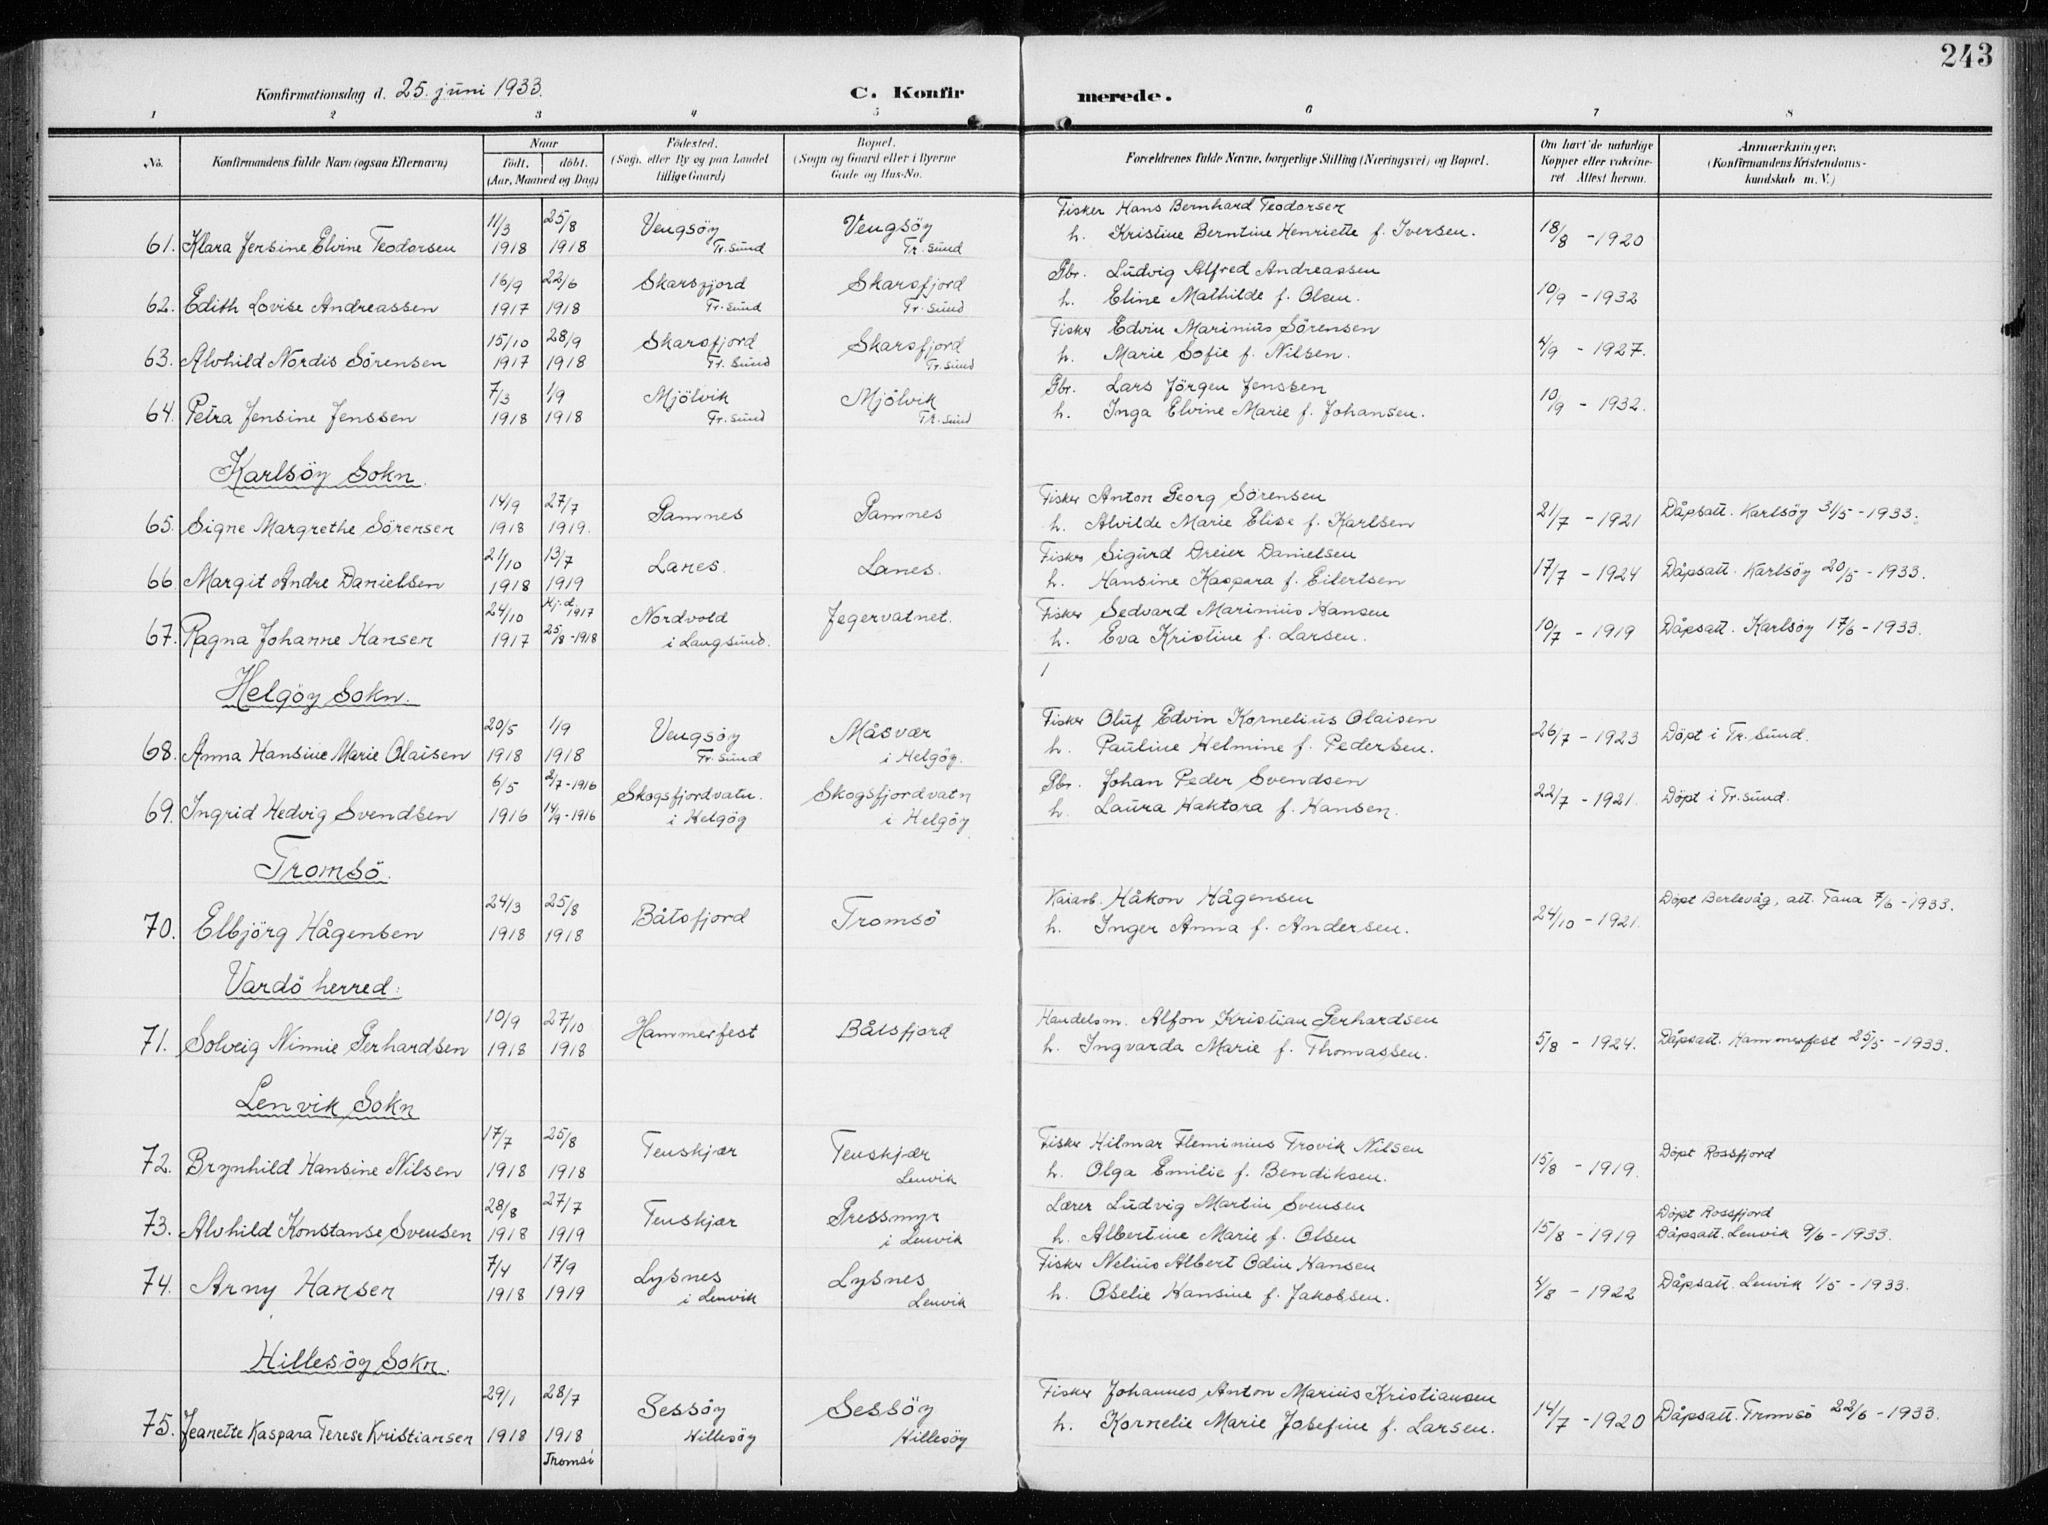 243
Konfirmationsdag d. 25. juni 1933.
C. Konfirmerede.
1 2 3 4 5 6 7 8
No. Konfirmandens fulde Navn (ogsaa Efternavn) Naar födt. döbt. (Aar, Maaned og Dag) Födested. (Sogn eller By og paa Landet tillige Gaard) Bopæl. (Sogn og Gaard eller i Byerne Gade og Hus-No. Forældrenes fulde Navne, borgerlige Stilling (Næringsvei) og Bopæl. Om havt de naturlige Kopper eller vakcineret Attest herom. Anmærkninger, (Konfirmandens Kristendomskundskab m. V.)
11/3 25/8 Vengsöy Vengsöy Fisker Hans Bernhard Teodorsen
61. Klara Jensine Elvine Teodorsen 1918 1918 Tr. sund Tr. sund h. Kristine Berntine Henriette f. Iversen. 18/8 - 1920
16/9 22/6 Skarsfjord Skarsfjord Gbr. Ludvig Alfred Andreassen
62. Edith Lovise Andreassen 1917 1918 Tr. sund Tr. sund h. Eline Mathilde f. Olsen. 10/9 - 1932
15/10 28/9 Skarsfjord Skarsfjord Fisker Edvin Marinius Sörensen
63. Alvhild Nordis Sörensen 1917 1918 Tr. sund Tr. sund h. Marie Sofie f. Nilsen. 4/9 - 1927.
7/3 1/9 Mjölvik Mjölvik Gbr. Lars Jörgen Jenssen
64. Petra Jensine Jenssen 1918 1918 Tr. sund Tr. sund h. Inga Elvine Marie f. Johansen. 10/9 - 1932.
Karlsöy Sokn.
14/9 27/7 Gamnes Gamnes Fisker Anton Georg Sörensen
65. Signe Margrethe Sörensen 1918 1919. h. Alvilde Marie Elise f. Karlsen 21/7 - 1921 Dåpsatt. Karlsöy 31/5 - 1933.
21/10 13/7 Lanes. Lanes. Fisker Sigurd Dreier Danielsen
66. Margit Andre Danielsen 1918 1919 h. Hansine Kaspara f. Eilertsen 17/7 - 1924 Dåpsatt. Karlsöy 20/5 - 1933.
24/10 Hj.d. 1917 Nordvold Jegervatnet. Fisker Sedvard Marinius Hansen
67. Ragna Johanne Hansen 1917 25/8 - 1918 i Langsund. h. Eva Kristine f. Larsen. 10/7 - 1919 Dåpsatt. Karlsöy 17/6 - 1933.
Helgöy Sokn.
20/5 1/9 Vengsöy Måsvær Fisker Oluf Edvin Kornelius Olaisen
68. Anna Hansine Marie Olaisen 1918 1918 Tr. sund i Helgöy. h. Pauline Helmine f. Pedersen. 26/7 - 1923 Döpt i Tr. sund.
6/5 2/7 - 1916 Skogsfjordvatn. Skogsfjordvatn Gbr. Johan Peder Svendsen
69. Ingrid Hedvig Svendsen 1916 14/9 - 1916 i Helgöy i Helgöy h. Laura Haktora f. Hansen. 22/7 - 1921. Döpt i Tr. sund.
Tromsö.
24/3 25/8 Båtsfjord Tromsö Kaiarb. Håkon Hågensen Döpt Berlevåg, att. Tana 7/6 - 1933.
70. Elbjörg Hågensen 1918 1918 h. Inger Anna f. Andersen. 24/10 - 1921.
Vardö herred:
10/9 27/10 Hammerfest Båtsfjord Handelsm. Alfon Kristian Gerhardsen
71. Solveig Ninnie Gerhardsen 1918 1918 h. Ingvarda Marie f. Thomassen. 5/8 - 1924. Dåpsatt. Hammerfest 25/5 - 1933.
Lenvik Sokn
17/7 25/8 Tenskjær Tenskjær Fisker Hilmar Fleminius Trovik Nilsen Döpt Rossfjord
72. Brynhild Hansine Nilsen 1918 1918 Lenvik h. Olga Emilie f. Bendiksen. 15/8 - 1919.
28/8 27/7 Tenskjær Gressmyr Lærer Ludvig Martin Svensen Döpt Rossfjord
73. Alvhild Konstanse Svensen 1918 1919 i Lenvik h. Albertine Marie f. Olsen 15/8 - 1919 Dåpsatt. Lenvik 9/6 - 1933.
7/4 17/9 Lysnes Lysnes Fisker Nelius Albert Odin Hansen
74. Arny Hansen 1918 1919 i Lenvik Lenvik h. Oselie Hansine f. Jakobsen. 4/8 - 1922 Dåpsatt. Lenvik 1/5 - 1933.
Hillesöy Sokn.
29/1 28/7 Sessöy Sessöy Fisker Johannes Anton Marius Kristiansen
75. Jeanette Kaspara Terese Kristiansen 1918 1918 Hillesöy Hillesöy h. Kornelie Marie Josefine f. Larsen. 14/7 - 1920 Dåpsatt. Tromsö 22/6 - 1933.
Tromsö